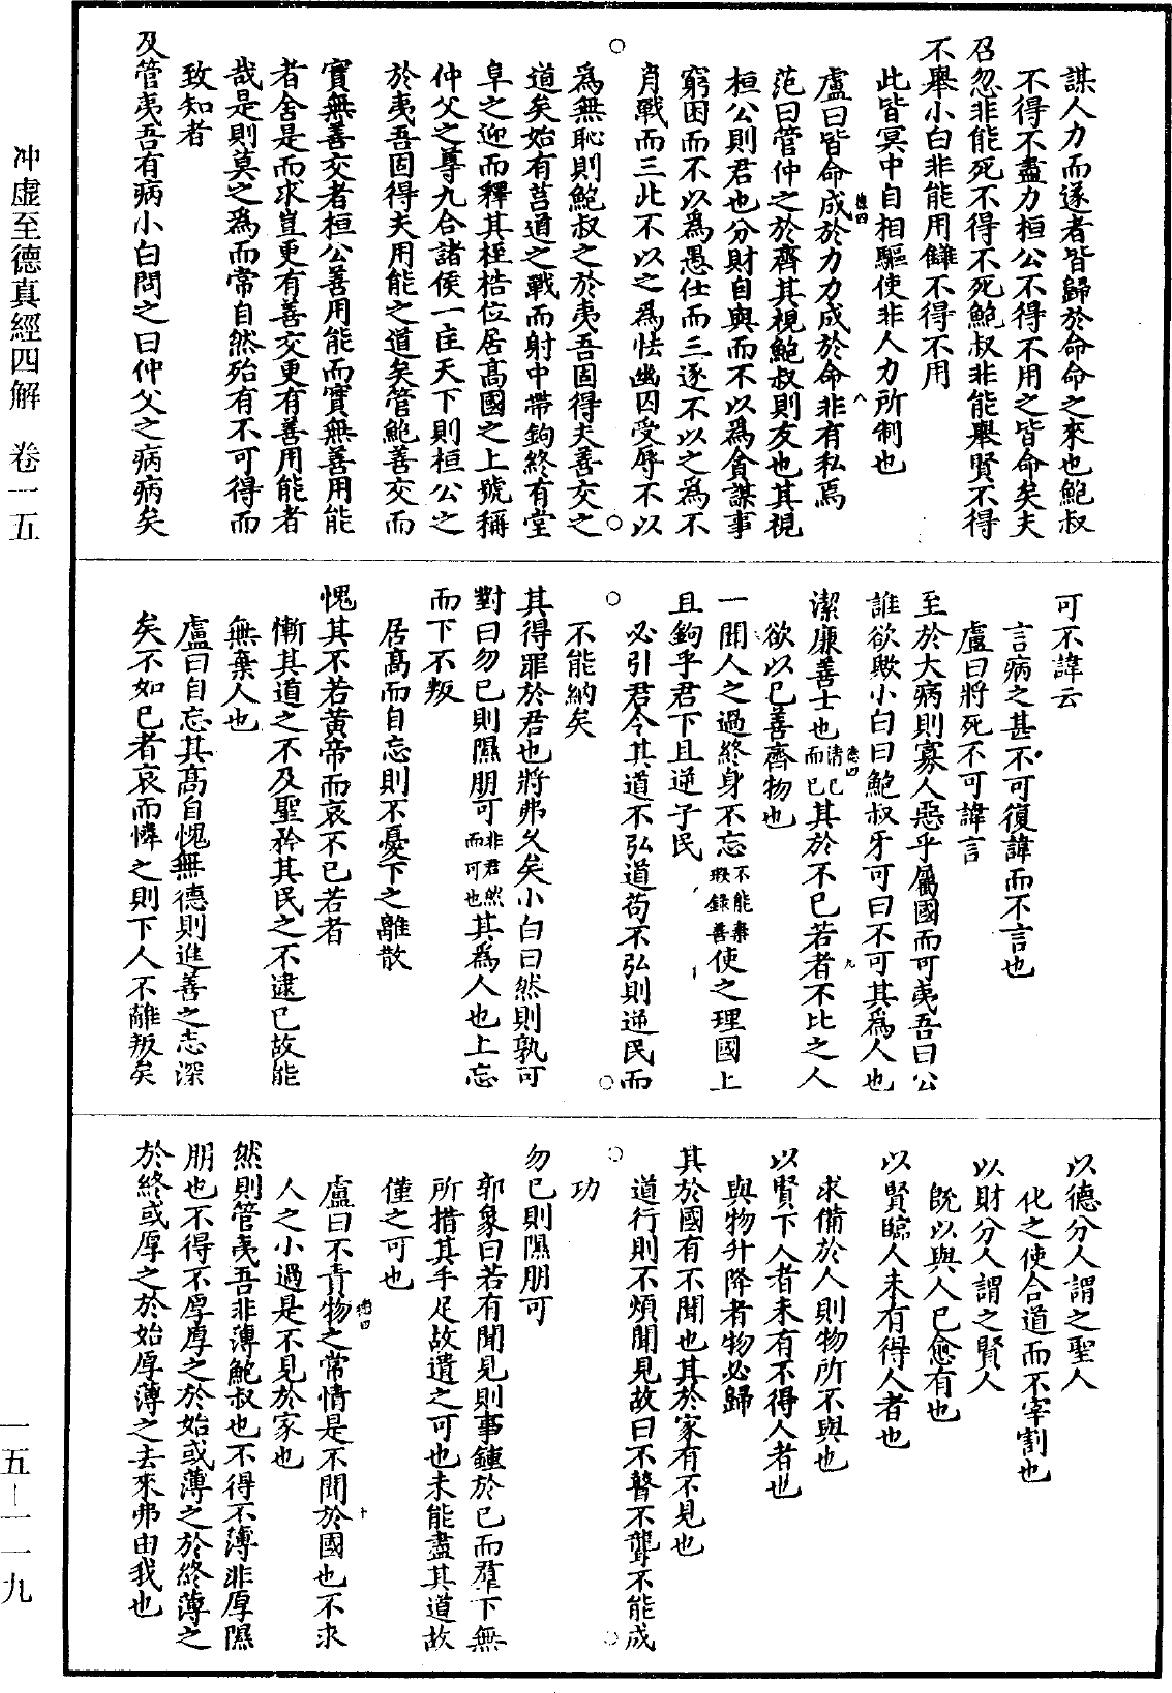 冲虛至德真經四解　卷一五
一五—一一九
謀人力而遂者皆歸於命命之來也鮑叔
不得不盡力桓公不得不用之皆命矣夫
召忽非能死不得不死鮑叔非能舉賢不得
不舉小白非能用讎不得不用
此皆冥中自相驅使非人力所制也
盧曰皆命成於力力成於命非有私焉
德四
八
范曰管仲之於齊其視鮑叔則友也其視
桓公則君也分財自與而不以為貪謀事
窮困而不以為愚仕而三逐不以之為不
肖戰而三北不以之為怯幽囚受辱不以
為無恥則鮑叔之於夷吾固得夫善交之
道矣始有莒道之戰而射中帶鉤終有堂
阜之迎而釋其桎梏位居高國之上號稱
仲父之尊九合諸侯一匡天下則桓公之
於夷吾固得夫用能之道矣管鮑善交而
實無善交者桓公善用能而實無善用能
者舍是而求豈更有善交更有善用能者
哉是則莫之為而常自然殆有不可得而
致知者
及管夷吾有病小白問之曰仲父之病病矣
可不諱云
言病之甚不可復諱而不言也
盧曰將死不可諱言
至於大病則寡人惡乎屬國而可夷吾曰公
誰欲歟小白曰鮑叔牙可曰不可其為人也
潔廉善士也清己而已其於不己若者不比之人
德四
九
欲以己善齊物也
一聞人之過終身不忘不能棄瑕錄善使之理國上
且鉤乎君下且逆乎民
必引君令其道不弘道苟不弘則逆民而
不能納矣
其得罪於君也將弗久矣小白曰然則孰可
對曰勿已則隰朋可非君然而可也其為人也上忘
而下不叛
居高而自忘則不憂下之離散
愧其不若黃帝而哀不己若者
慚其道之不及聖矜其民之不逮己故能
無棄人也
盧曰自忘其高自愧無德則進善之志深
矣不如己者哀而憐之則下人不離叛矣
以德分人謂之聖人
化之使合道而不宰割也
以財分人謂之賢人
既以與人己愈有也
以賢臨人未有得人者也
求備於人則物所不與也
以賢下人者未有不得人者也
與物升降者物必歸
其於國有不聞也其於家有不見也
道行則不煩聞見故曰不瞽不聾不能成
功
勿已則隰朋可
郭象曰若有聞見則事鍾於己而群下無
所措其手足故遺之可也未能盡其道故
僅之可也
盧曰不責物之常情是不聞於國也不求
德四
十
人之小過是不見於家也
然則管夷吾非薄鮑叔也不得不薄非厚隰
朋也不得不厚厚之於始或薄之於終薄之
於終或厚之於始厚薄之去來弗由我也